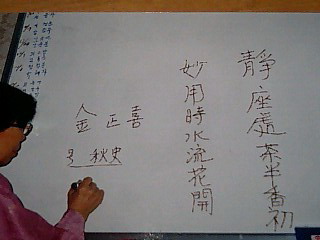 靜座處茶半香初
妙用時水流花開
金正喜
号 秋史